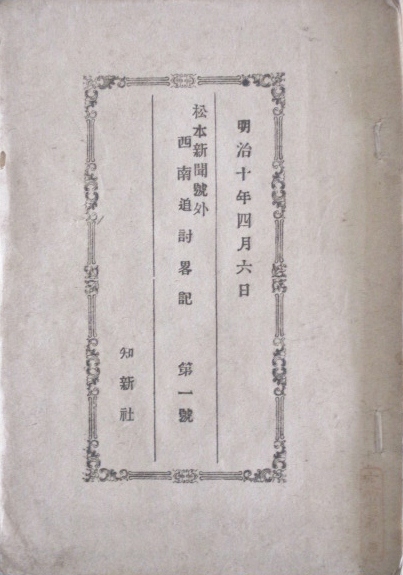 明治十年四月六日
松本新聞號外
西南追討畧記　第一號
知新社